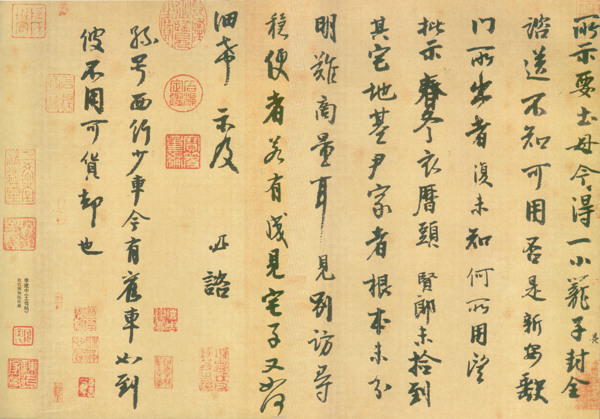 所示要土母今得一小籠子封全
諮送不知可用否是新安缺
門所出者復未知何所用望
批示春冬衣曆頭 賢郎未拾到
其宅地基尹家者根本未分
明難商量耳見別訪尋
穩便者若有成見宅子又如何
細希 示及 諮
孫号西行少車今有舊車如到
彼不用可貨却也
李建中《土母帖》